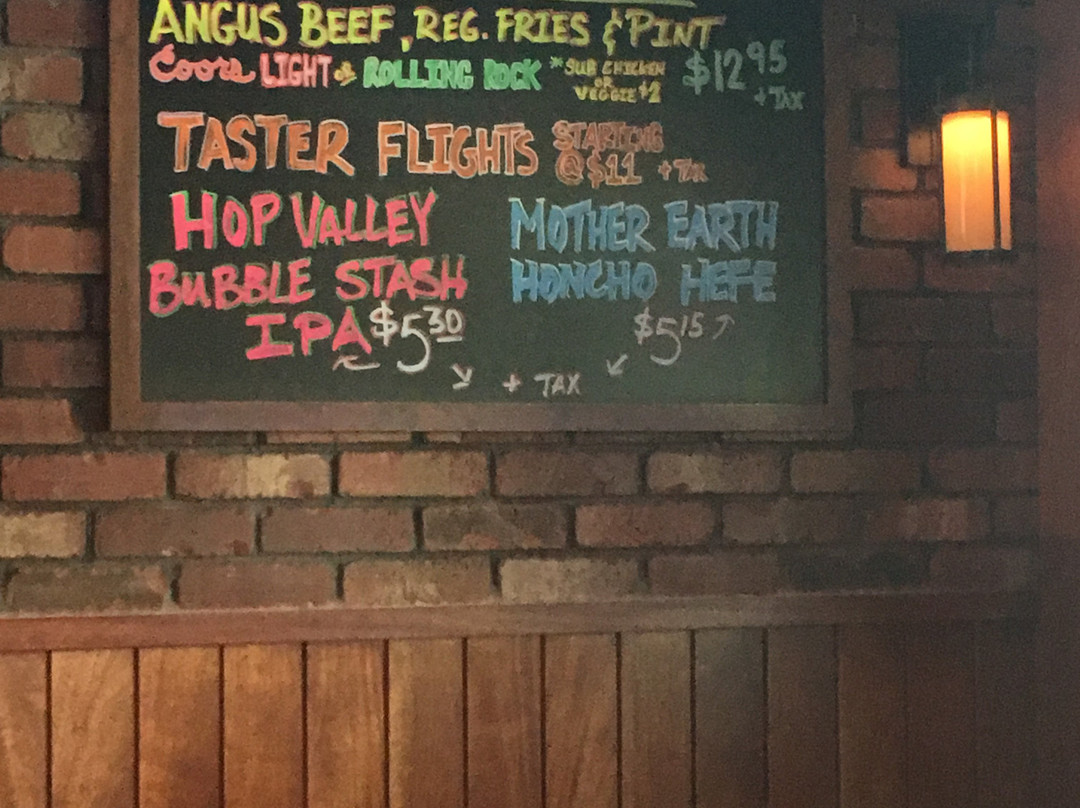 ANGUS BEEF, REG. FRIES & PINT
Coors LIGHT or ROLLING ROCK *SUB CHICKEN OR VEGGIE +2 $12.95 + TAX
TASTER FLIGHTS STARTING @ $11 + TAX
HOP VALLEY
BUBBLE STASH
IPA $5.30
MOTHER EARTH
HONCHO HEFE
$5.15
+ TAX